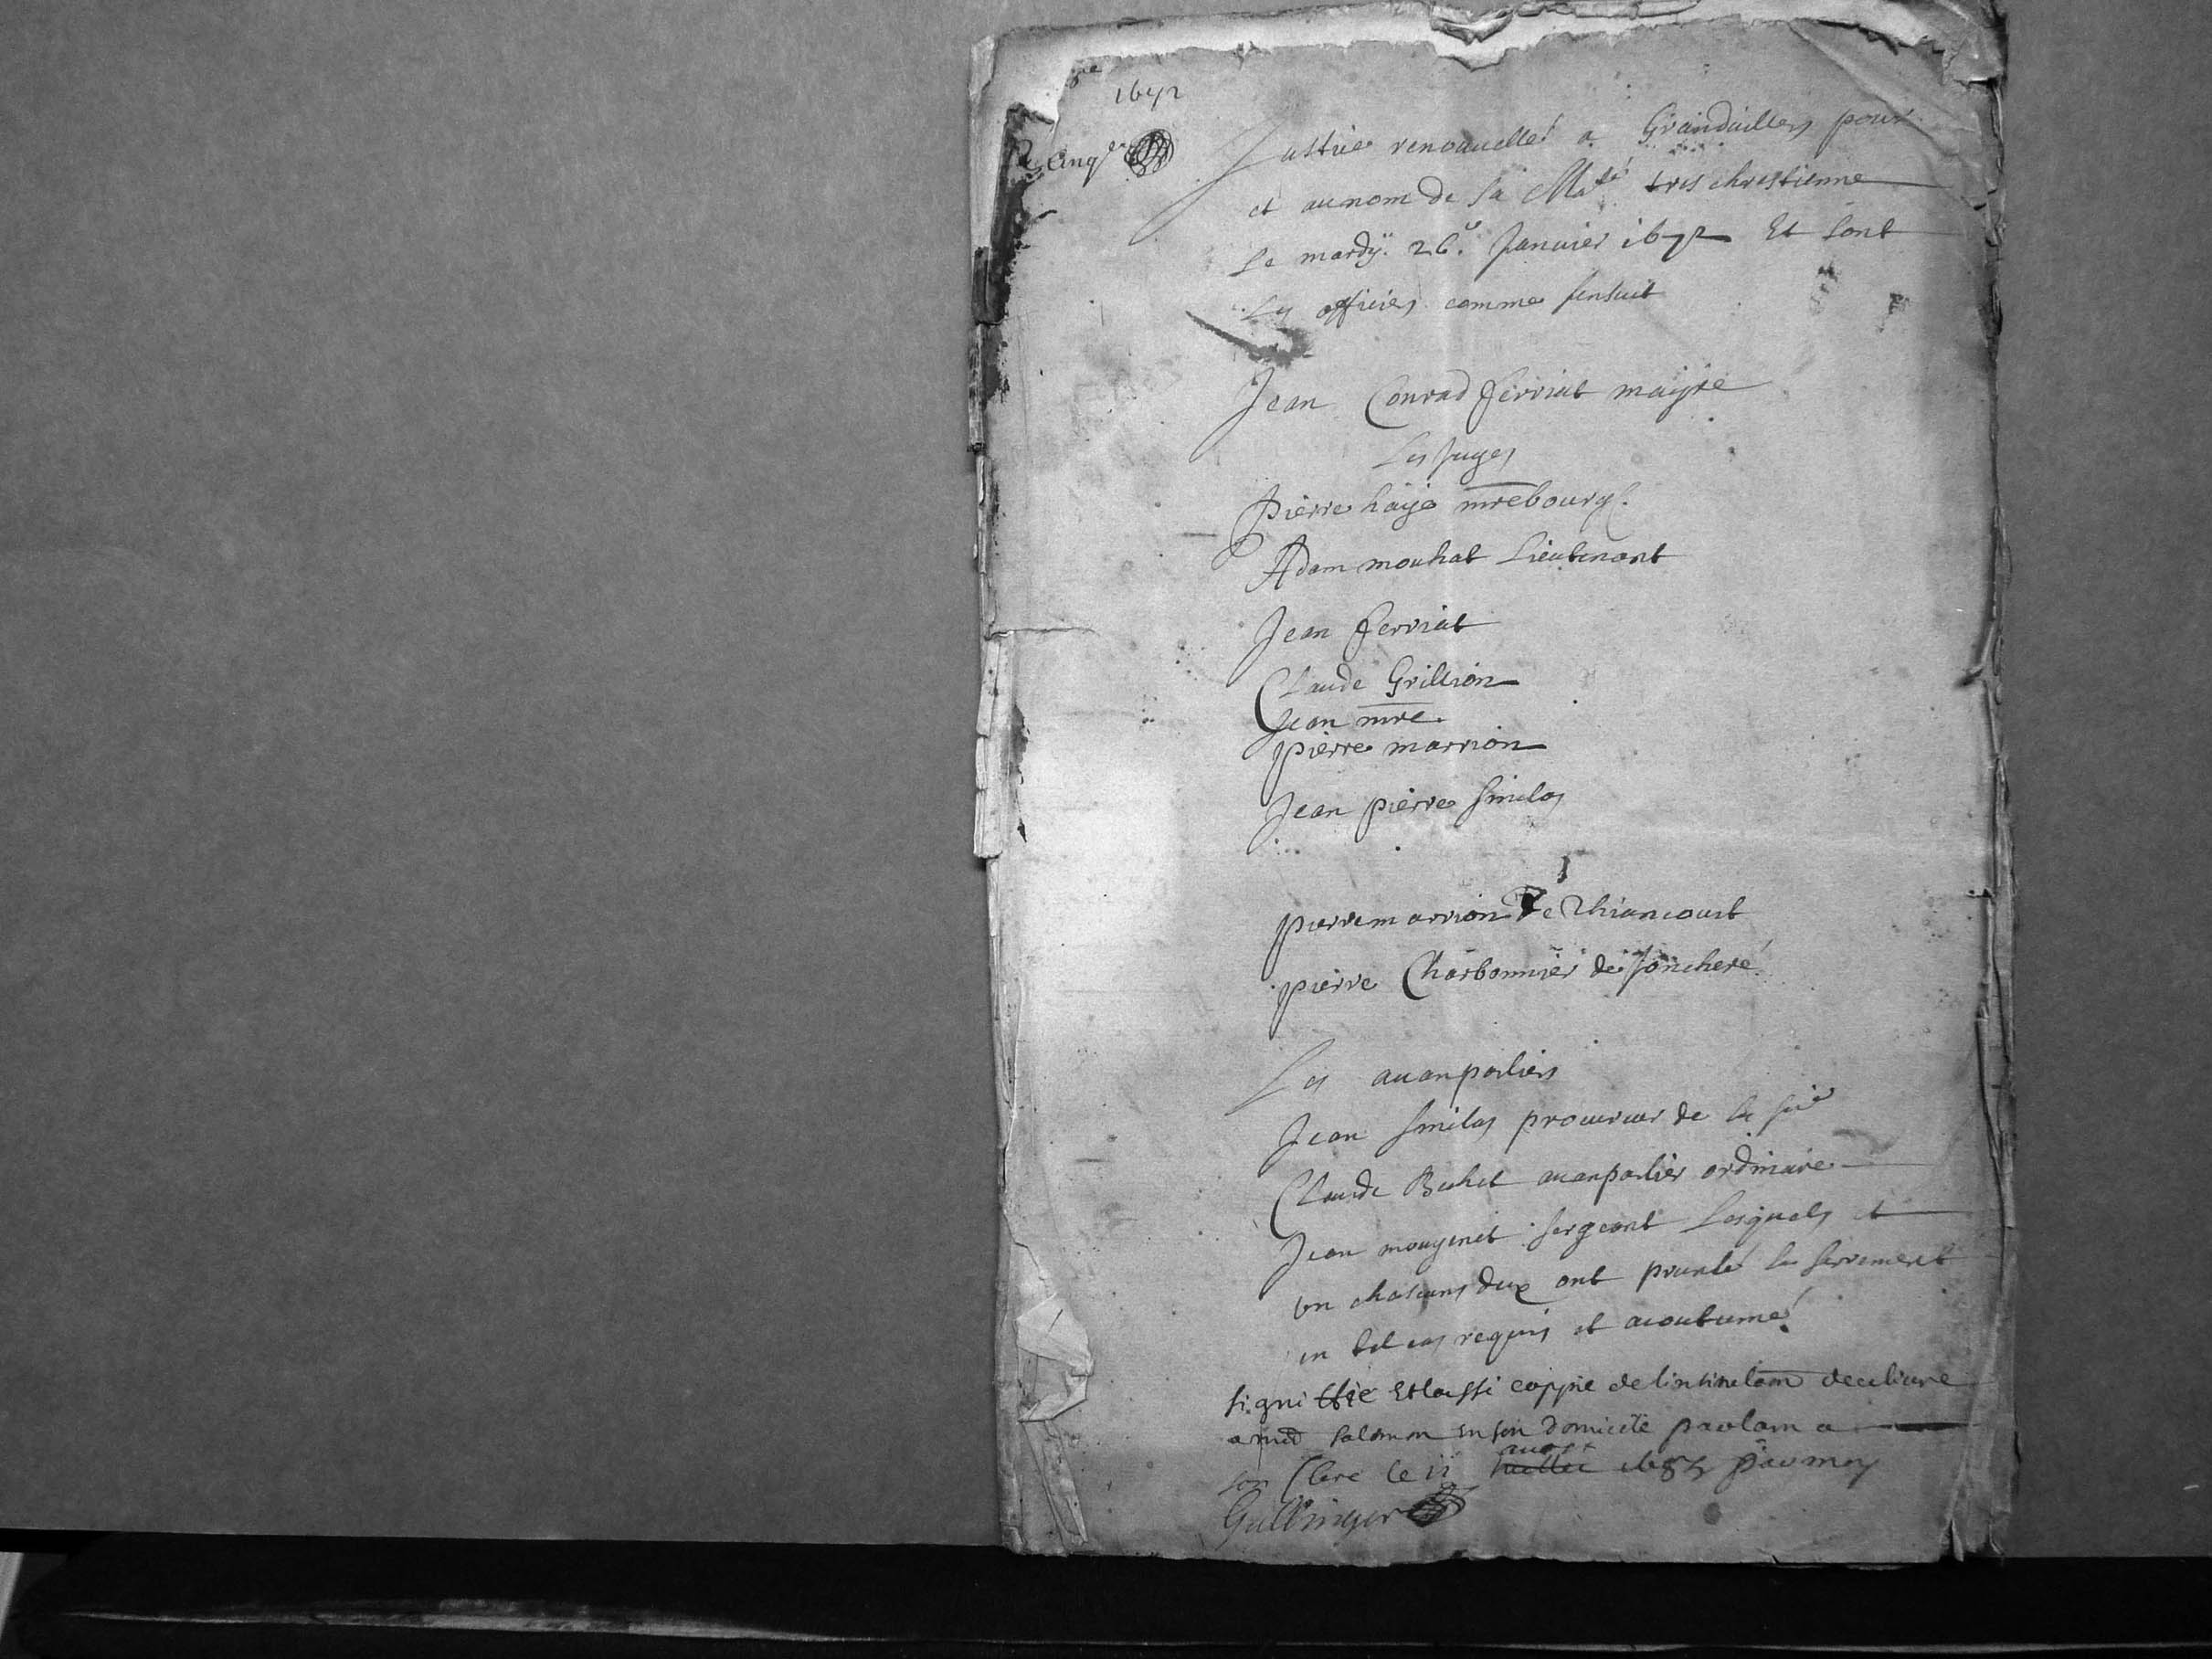 1672
Justice renouuellé a Granduillers pour
et au nom de Sa Ma.té tres chrestienne
Le mardÿ. 26.e Januier 1672 Et sont
Les officiers comme sensuit
Jean Conrad ferriat mayre
Les Juges
Pierre haye mrebourg.
Adam mouhat Lieutenant
Jean ferriat
Claude Grillion
Jean mre.
pierre marrion
Jean pierre Simelos
pierre marrion de Thiancourt
pierre Charbonnier de Joncheré
Les auanparliers
Jean Simelos procureur de la
Claude Bechet auanparlier ordinaire
Jean mougenet sergeant Lesquels et
un chascuns deux ont presté le serrement
en tel cas requis et acoutumé
signiffié Et laissé coppie de
a salomon en son domicile parlam a
son Clerc le 11 aust par moy